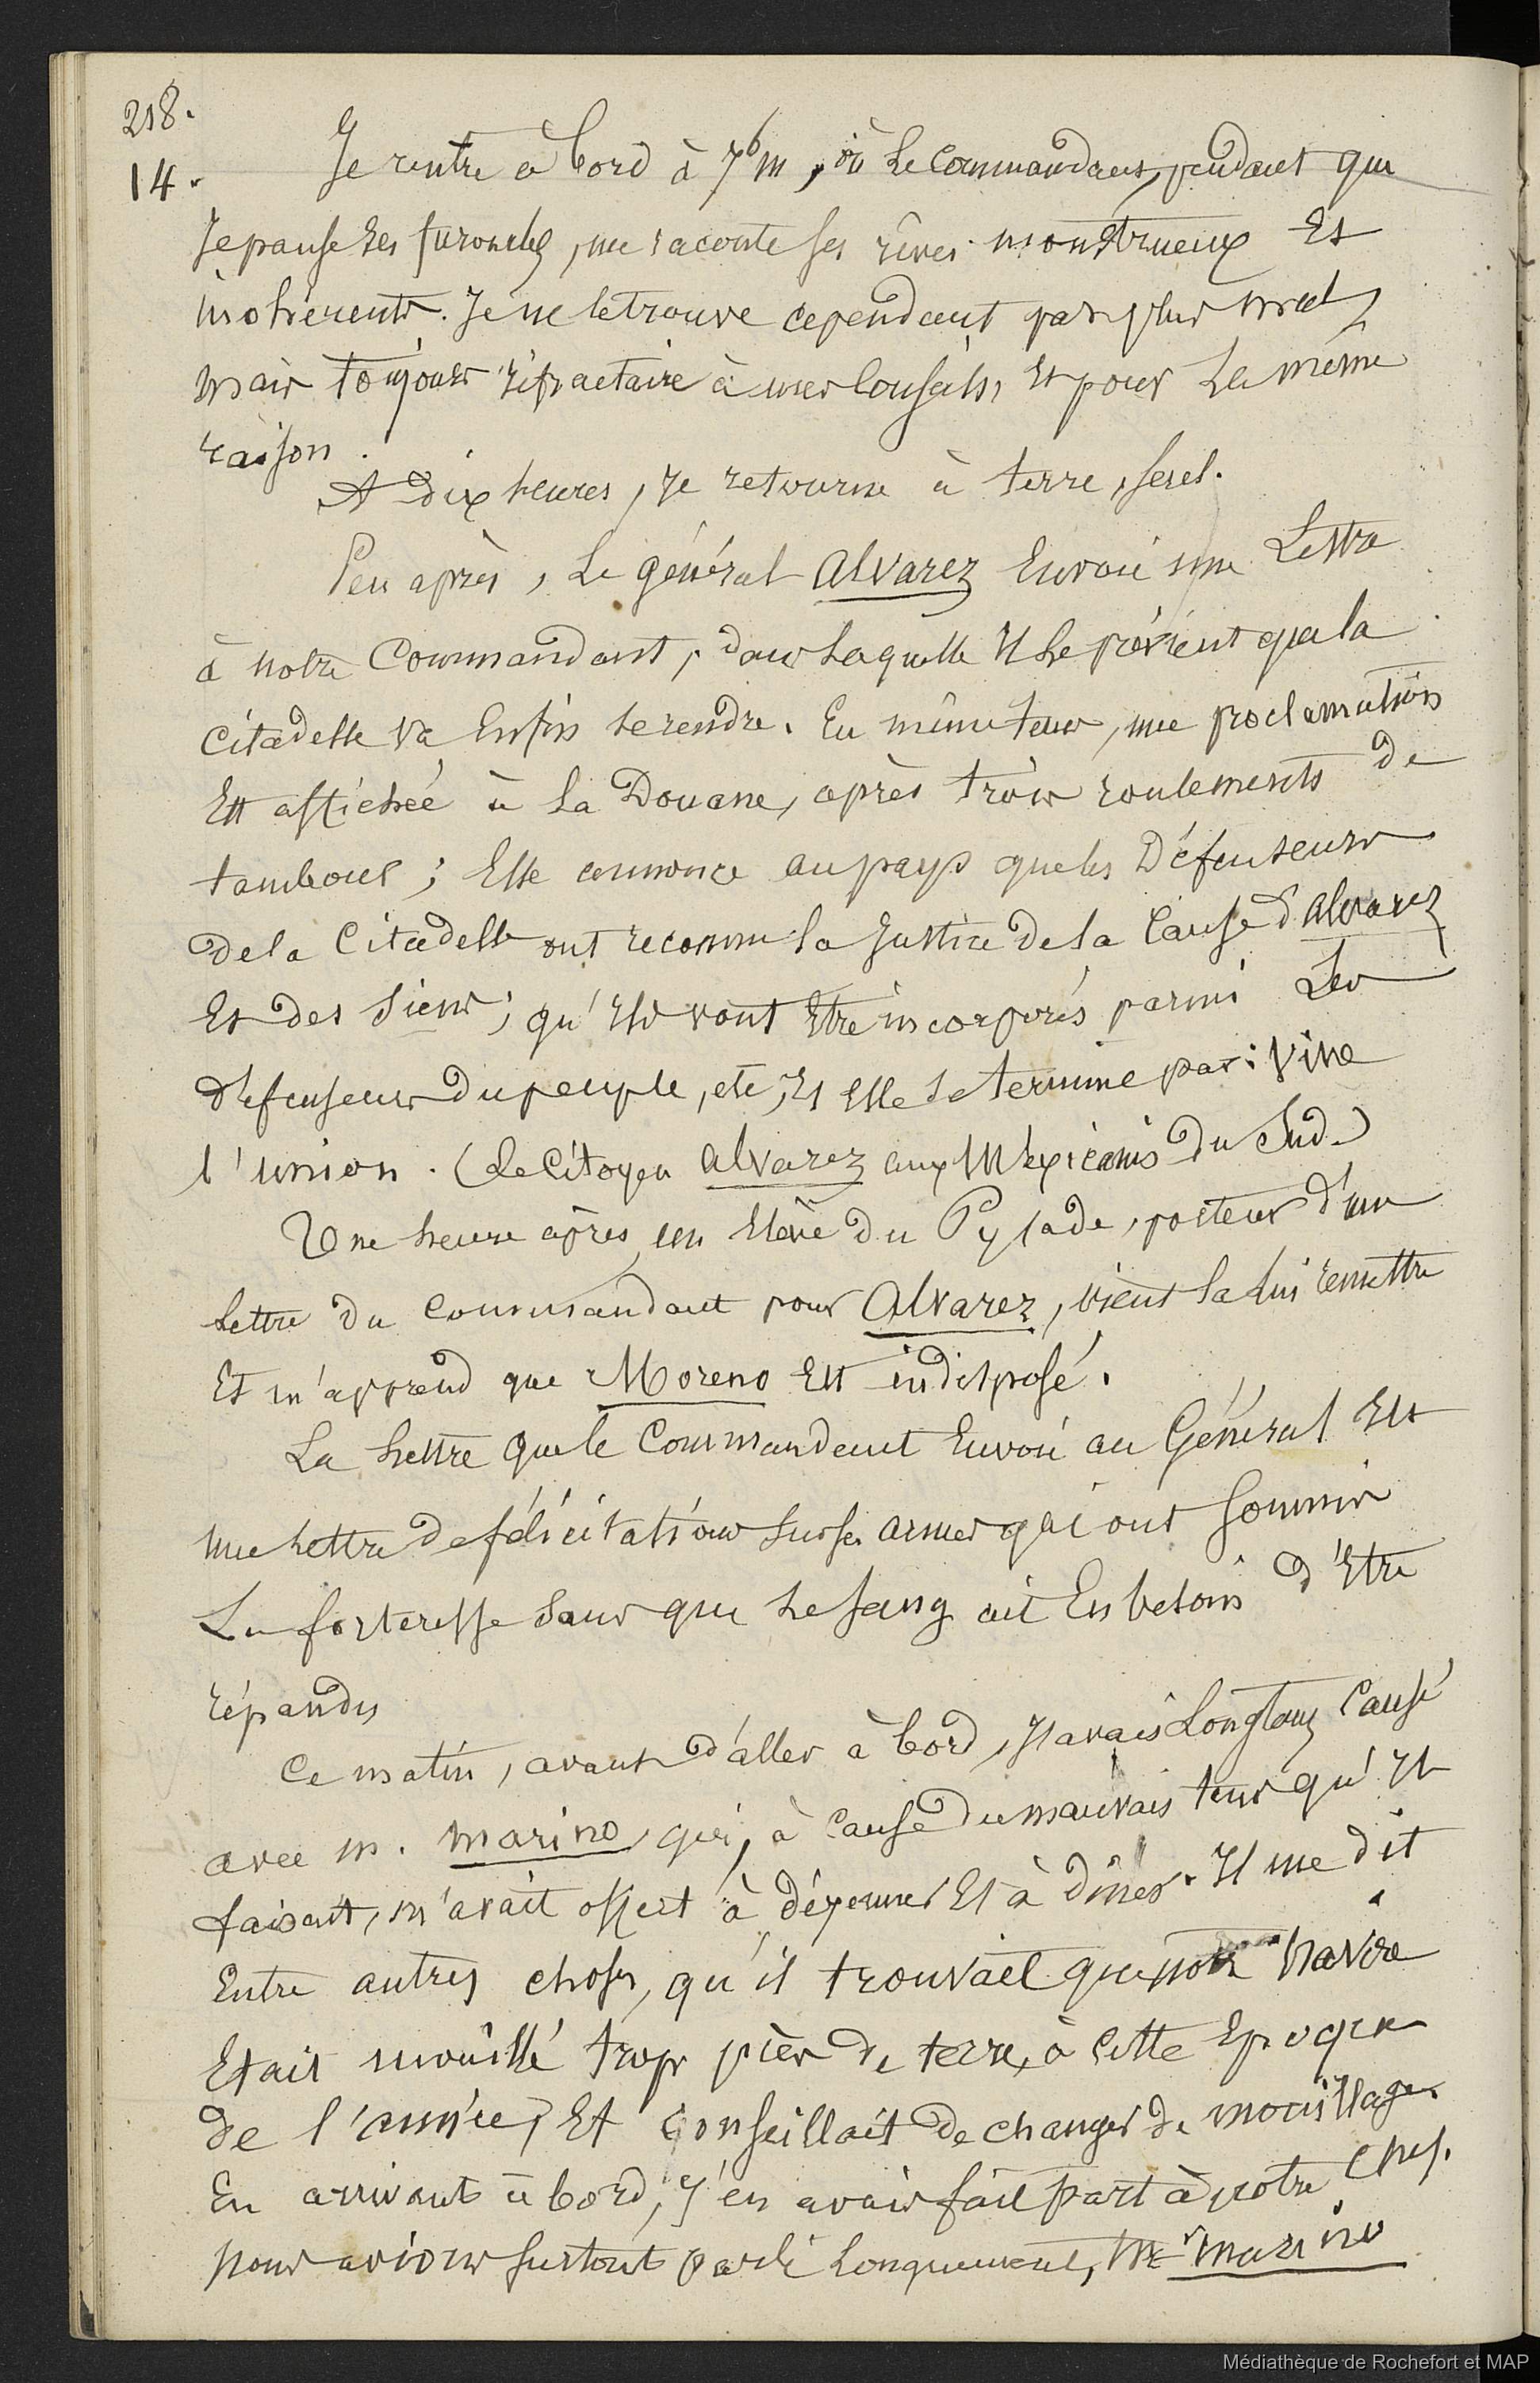 218.
14.
Je rentre à bord à 7h m, où le Commandant, pendant que
je panse ses furoncles, me raconte ses rêves monstrueux et
incohérents. Je ne le trouve cependant pas plus mal,
mais toujours réfractaire à mes conseils, et pour la même
raison.
A dix heures, je retourne à terre, seul.
Peu après, le général Alvarez envoie une Lettre
à notre Commandant, dans laquelle il le prévient que la
Citadelle va enfin se rendre. En même tems, une proclamation
est affichée à la Douane, après trois roulements de
tambour ; elle annonce au pays que les Défenseurs
de la Citadelle ont reconnu la justice de la Cause d'Alvarez
et des siens ; qu'ils vont être incorporés parmi les
défenseurs du peuple, etc, et elle se termine par : Vive
l'union. (Le Citoyen Alvarez aux Mexicains du Sud.)
Une heure après, un élève du Pylade, porteur d'une
lettre du Commandant pour Alvarez, vient la lui remettre
et m'apprend que Moreno est indisposé.
La lettre que le Commandant envoie au Général est
une lettre de félicitations sur ses armes qui ont soumis
la forteresse sans que le sang ait eu besoin d'être
répandu
Ce matin, avant d'aller à bord, j'avais longtems causé
avec m. Marino qui, à cause du mauvais tems qu'il
faisait, m'avait offert à déjeuner et à dîner. Il me dit
entre autres choses, qu'il trouvait que notre navire
était mouillé trop près de terre, à cette époque
de l'année, et conseillait de changer de mouillage.
En arrivant à bord, j'en avais fait part à notre chef.
Nous avions surtout parlé longuement, Mr Marino
Médiathèque de Rochefort et MAP